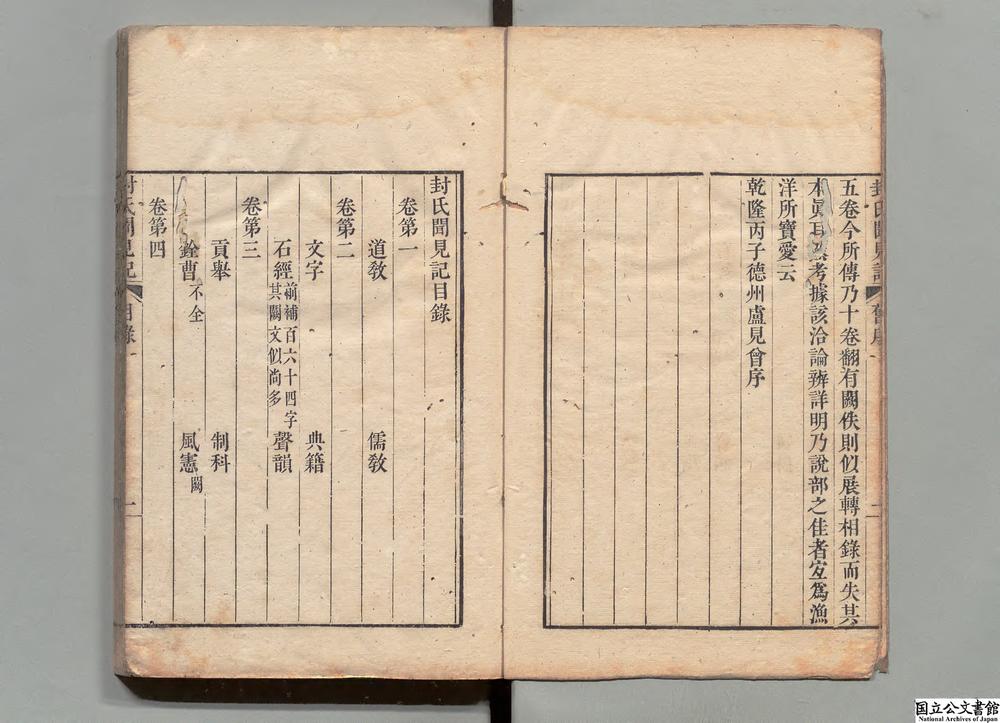 五卷今所傳乃十卷翻有闕佚則似展轉相錄而失其
本眞耳考據該洽論辨詳明乃說部之佳者宐爲漁
洋所寶愛云
乾隆丙子德州盧見曾序
封氏聞見記目錄
卷第一
道敎 儒敎
卷第二
文字 典籍
石經 前補百六十四字其闕文似尚多 聲韻
卷第三
貢舉 制科
銓曹 不全 風憲 闕
卷第四
封氏聞見記 目錄 一
国立公文書館
National Archives of Japan